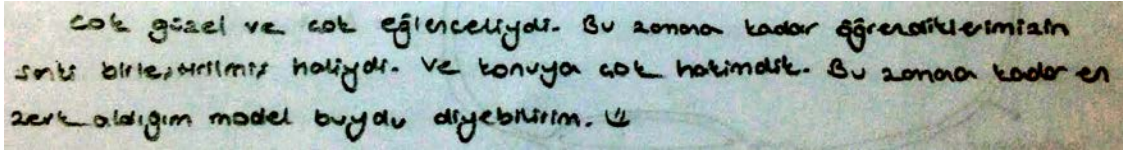 Çok güzel ve çok eğlenceliydi. Bu zamana kadar öğrendiklerimizin
sanki birleştirilmiş haliydi. Ve konuya çok hakimdik. Bu zamana kadar en
zevk aldığım model buydu diyebilirim. ☺